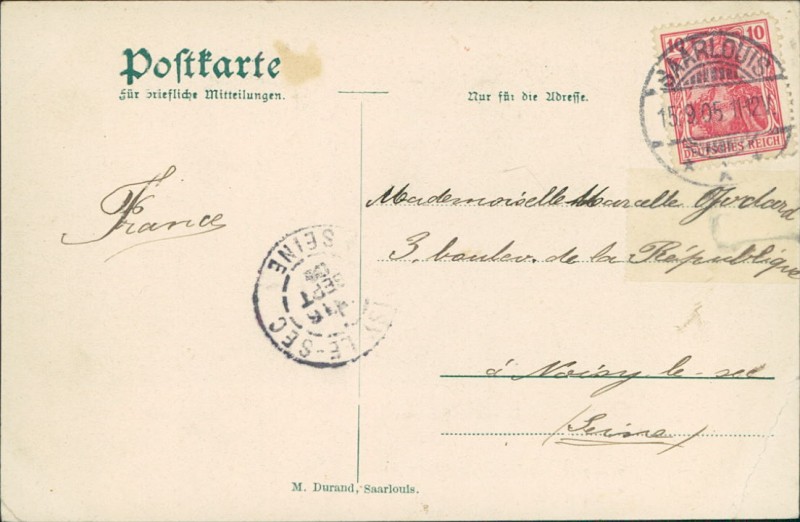 Postkarte
Für briefliche Mitteilungen.
Nur für die Adresse.
10 10
DEUTSCHES REICH
SAARLOUIS
15.9.05 11-12V.
France
Mademoiselle Marcelle Godard
3, boulev. de la République
à Noisy le-sec
(Seine)
LE-SEC
SEPT
SEINE
M. Durand, Saarlouis.